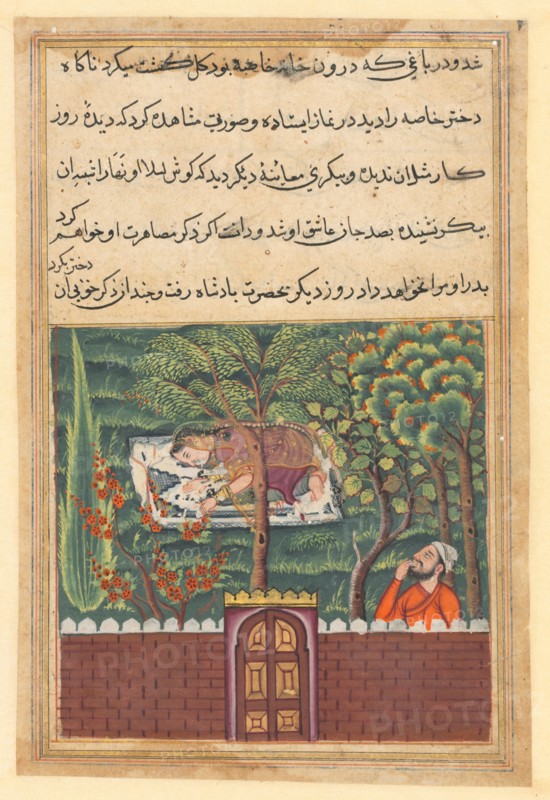 شد و در باغی که درون خانه خاصه بود کل کشت میکرد ناکاه
دختر خاصه را دید در نماز ایستاده و صورتی مشاهده کرد که دیدهٔ روز
کار مثل آن ندیده و پیکری معاینهٔ دیگر دید که کوش لیلا و نهار
پیکر نشینده بصد جان عاشق او شد و دانست اکر ذکر مصاهرت او خواهم کرد
پدر او مرا نخواهد داد روز دیکر بحضرت پادشاه رفت و چندان ذکر خوبی آن دختر بکرد
PHOTO12